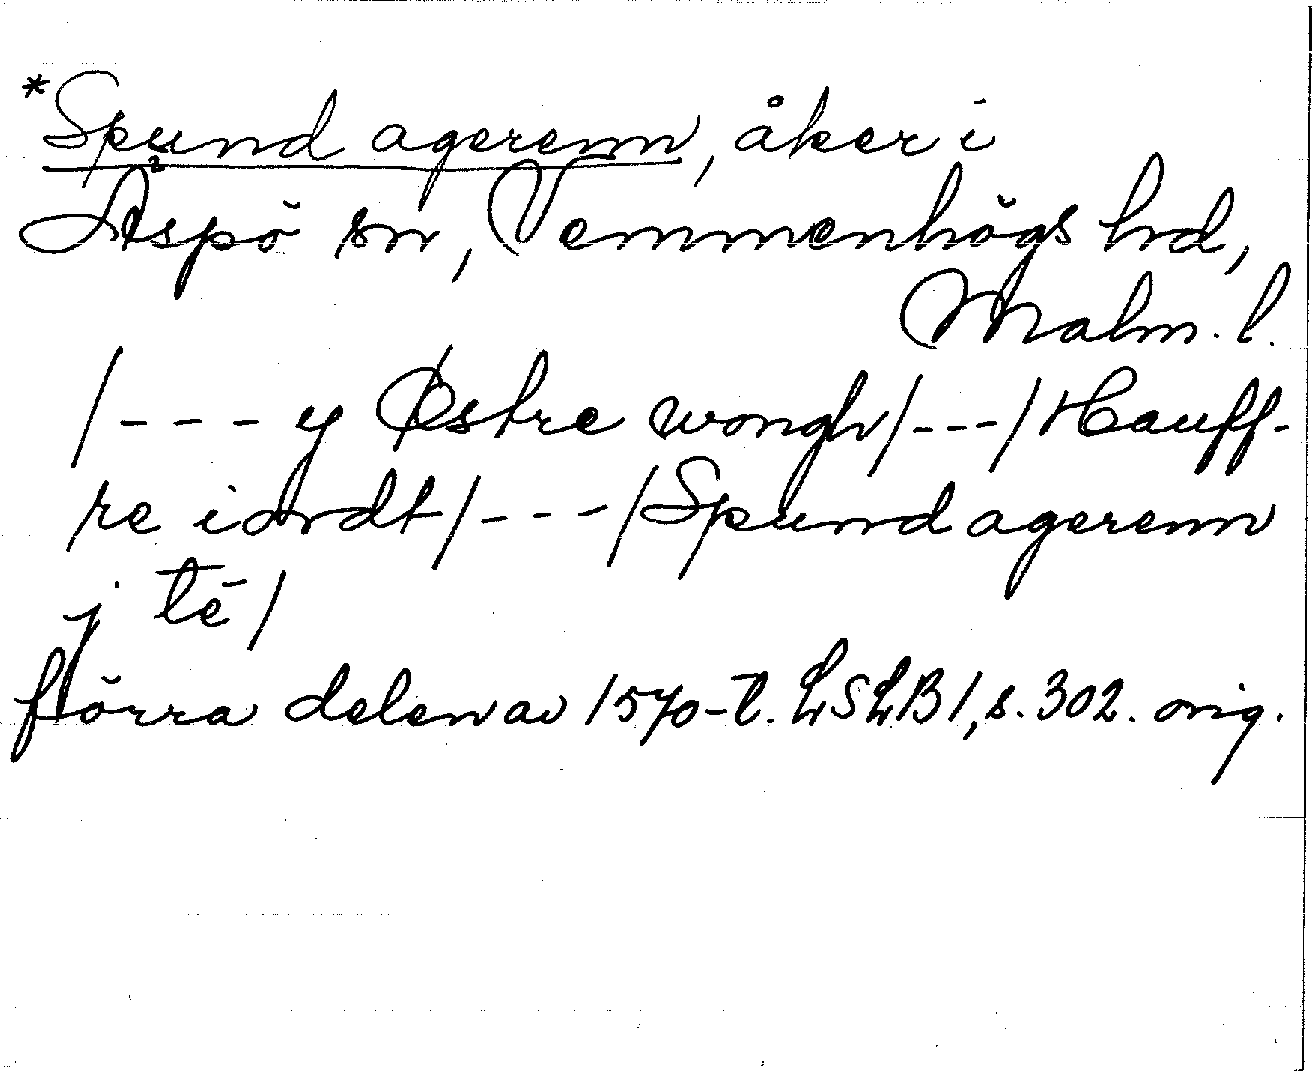 *Spund agerenn, åker i
Äspö sn, Vemmenhögs hd,
Malm. l.
/--- y Østre wongh/---/Hauff-
re iordt/---/Spund agerenn
j tē/
förra delen av 1570-t. LSLB1, s. 302. orig.